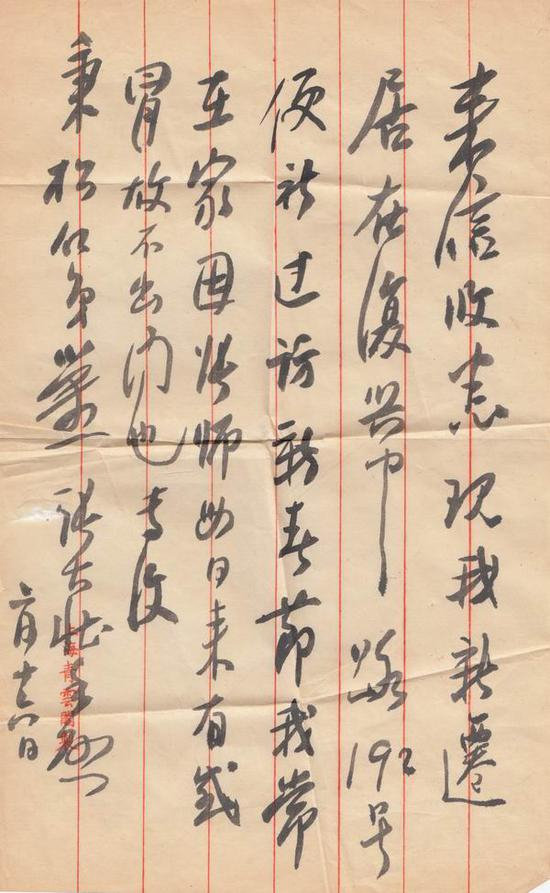 来信收悉现我新迁
居在復兴中路192号
便祈过访新春节我常
在家因张师母日来有感
冒故不出门也专復
秉松仁弟鉴 张大壮手启
二月十八日
青雲閣